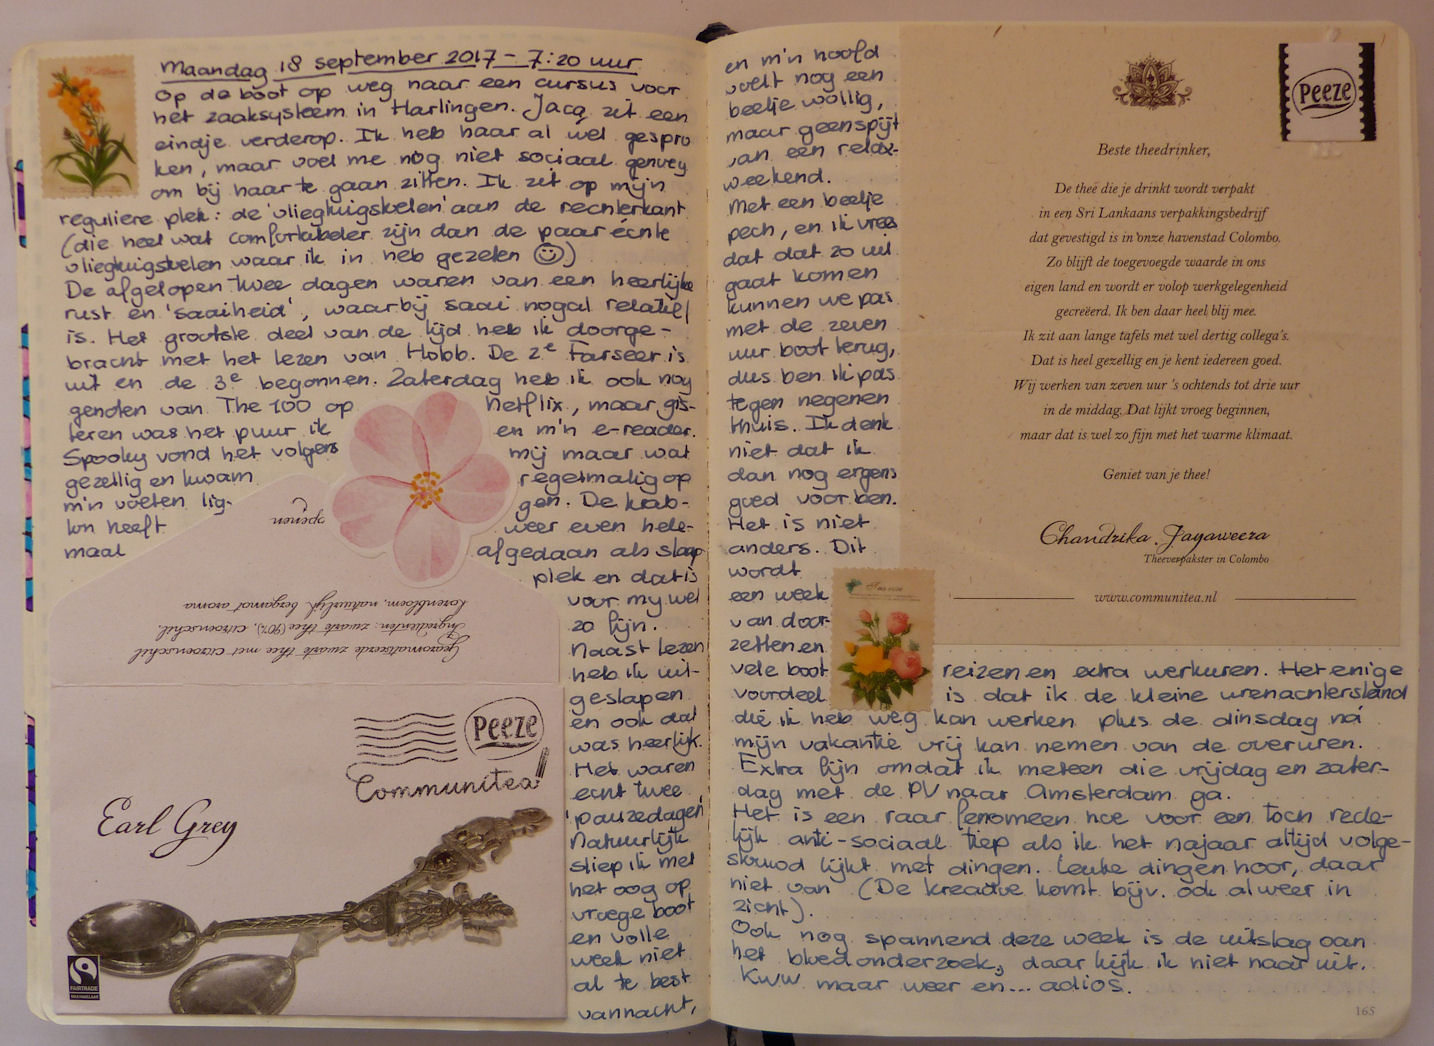 Maandag 18 september 2017 - 7:20 uur
Op de boot op weg naar een cursus voor
het zaaksysteem in Harlingen. Jacq zit een
eindje verderop. Ik heb haar al wel gespro
ken, maar voel me nog niet sociaal genoeg
om bij haar te gaan zitten. Ik zit op mijn
reguliere plek: de 'vliegtuigstoelen' aan de rechterkant
(die heel wat comfortabeler zijn dan de paar échte
vliegtuigstoelen waar ik in heb gezeten ☺)
De afgelopen twee dagen waren van een heerlijke
rust en 'saaiheid', waarbij saai nogal relatief
is. Het grootste deel van de tijd heb ik doorge-
bracht met het lezen van Hobb. De 2e Farseer is
uit en de 3e begonnen. Zaterdag heb ik ook nog
genoten van The 100 op Netflix, maar gis-
teren was het puur ik en m'n e-reader.
Spooky vond het volgens mij maar wat
gezellig en kwam regelmatig op
m'n voeten lig- gen. De krab-
ton heeft weer even hele-
maal afgedaan als slaap
plek en dat is
voor my wel
zo fijn.
Naast lezen
heb ik uit-
geslapen
en ook dat
was heerlijk.
Het waren
echt twee
'pauzedagen'
Natuurlijk
sliep ik met
het oog op
vroege boot
en volle
week niet
al te best
vannacht,
openen
Gearomatiseerde zwarte thee met citroenschil
Ingrediënten: zwarte thee (90%), citroenschil,
korenbloem, natuurlijk bergamot aroma
Peeze
Communitea
Earl Grey
FAIRTRADE
MAX HAVELAAR
en m'n hoofd
voelt nog een
beetje wollig,
maar geen spijt
van een relax-
weekend.
Met een beetje
pech, en ik vrees
dat dat zo zal
gaat komen
kunnen we pas
met de zeven
uur boot terug,
dus ben ik pas
tegen negenen
thuis. Ik denk
niet dat ik
dan nog ergens
goed voor ben.
Het is niet
anders. Dit
wordt
een week
van door-
zetten en
vele boot reizen en extra werkuren. Het enige
voordeel is dat ik de kleine urenachterstand
die ik heb weg kan werken plus de dinsdag ná
mijn vakantie vrij kan nemen van de overuren.
Extra fijn omdat ik meteen die vrijdag en zater-
dag met de PV naar Amsterdam ga.
Het is een raar fenomeen hoe voor een toch rede-
lijk anti-sociaal tiep als ik het najaar altijd volge-
stuwd lijkt met dingen. Leuke dingen hoor, daar
niet van (De kreadoe komt bijv. ook alweer in
zicht).
Ook nog spannend deze week is de uitslag van
het bloedonderzoek, daar kijk ik niet naar uit.
Kww maar weer en... adios.
Peeze
Beste theedrinker,
De thee die je drinkt wordt verpakt
in een Sri Lankaans verpakkingsbedrijf
dat gevestigd is in onze havenstad Colombo.
Zo blijft de toegevoegde waarde in ons
eigen land en wordt er volop werkgelegenheid
gecreëerd. Ik ben daar heel blij mee.
Ik zit aan lange tafels met wel dertig collega's.
Dat is heel gezellig en je kent iedereen goed.
Wij werken van zeven uur 's ochtends tot drie uur
in de middag. Dat lijkt vroeg beginnen,
maar dat is wel zo fijn met het warme klimaat.
Geniet van je thee!
Chandrika Jayaweera
Theeverpakster in Colombo
www.communitea.nl
165